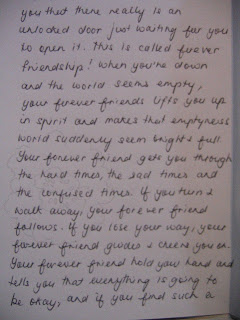 you that there really is an
unlocked door just waiting for you
to open it. This is called forever
friendship! when you're down
and the world seems empty,
your forever friends lifts you up
in spirit and makes that emptyness
world suddenly seem bright & full.
Your forever friend gets you through
the hard times, the sad times and
the confused times. if you turn &
walk away, your forever friend
follows. if you lose your way, your
forever friend guides & cheers you on.
Your forever friend hold your hand and
tells you that everything is going to
be okay, and if you find such a